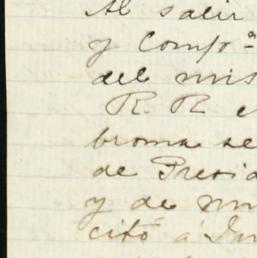 Al salir
y Comp.ª
del mis
R. R e
broma se
de Presid
y de mu
citó á In